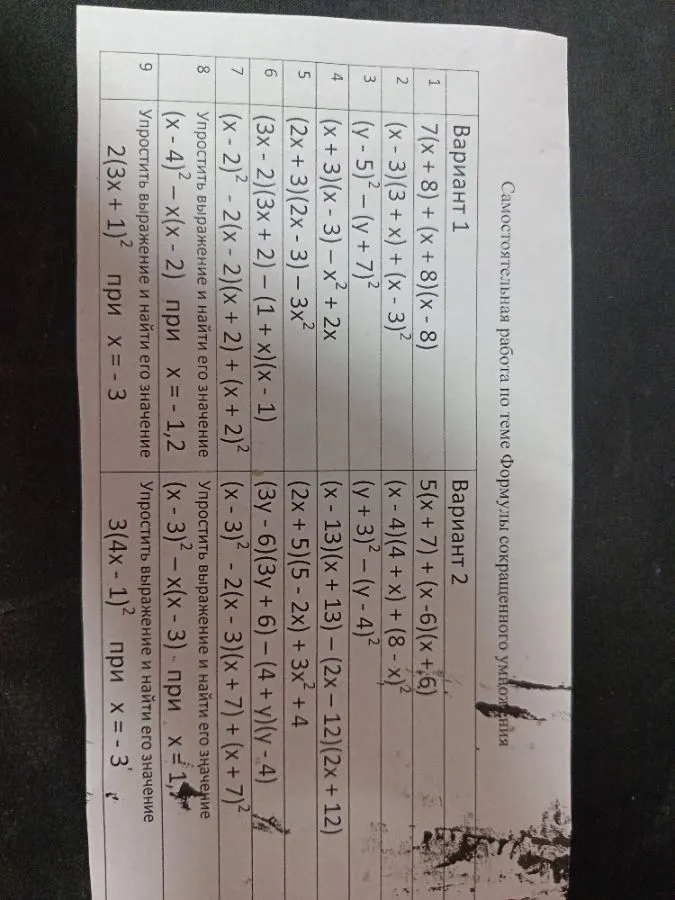 Самостоятельная работа по теме Формулы сокращенного умножения
Вариант 1 Вариант 2
1 7(x + 8) + (x + 8)(x - 8) 5(x + 7) + (x -6)(x + 6)
2 (x - 3)(3 + x) + (x - 3)² (x - 4)(4 + x) + (8 - x)²
3 (y - 5)² – (y + 7)² (y + 3)² – (y - 4)²
4 (x + 3)(x - 3) – x² + 2x (x - 13)(x + 13) – (2x – 12)(2x + 12)
5 (2x + 3)(2x - 3) – 3x² (2x + 5)(5 - 2x) + 3x² + 4
6 (3x - 2)(3x + 2) – (1 + x)(x - 1) (3y - 6)(3y + 6) – (4 + y)(y - 4)
7 (x - 2)² - 2(x - 2)(x + 2) + (x + 2)² (x - 3)² - 2(x - 3)(x + 7) + (x + 7)²
8 Упростить выражение и найти его значение Упростить выражение и найти его значение
(x - 4)² – x(x - 2) при x = - 1,2 (x - 3)² – x(x - 3) при x = 1,
9 Упростить выражение и найти его значение Упростить выражение и найти его значение
2(3x + 1)² при x = - 3 3(4x - 1)² при x = - 3